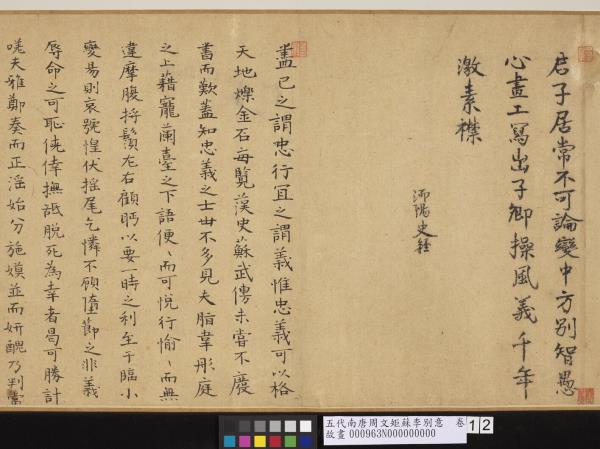 君子居常不可論變中方別智愚
心畫工寫出子卿操風義千年
激素襟
沔陽史經
盡己之謂忠行宜之謂義惟忠義可以格
天地爍金石每覽漢史蘇武傳未嘗不廢
書而歎蓋知忠義之士世不多見夫脂韋彤庭
之上藉寵蘭臺之下語便〻而可悅行愉〻而無
違摩腹捋鬚左右顧眄以要一時之利至于臨小
變易則哀號惶伏搖尾乞憐不顧墮節之非義
辱命之可恥僥倖撫詆脫死為幸者曷可勝計
嘵夫雅鄭奏而正淫始分施嫫並而妍醜乃判當
五代南唐周文矩蘇李別意 卷
故畫 000963N000000000
12